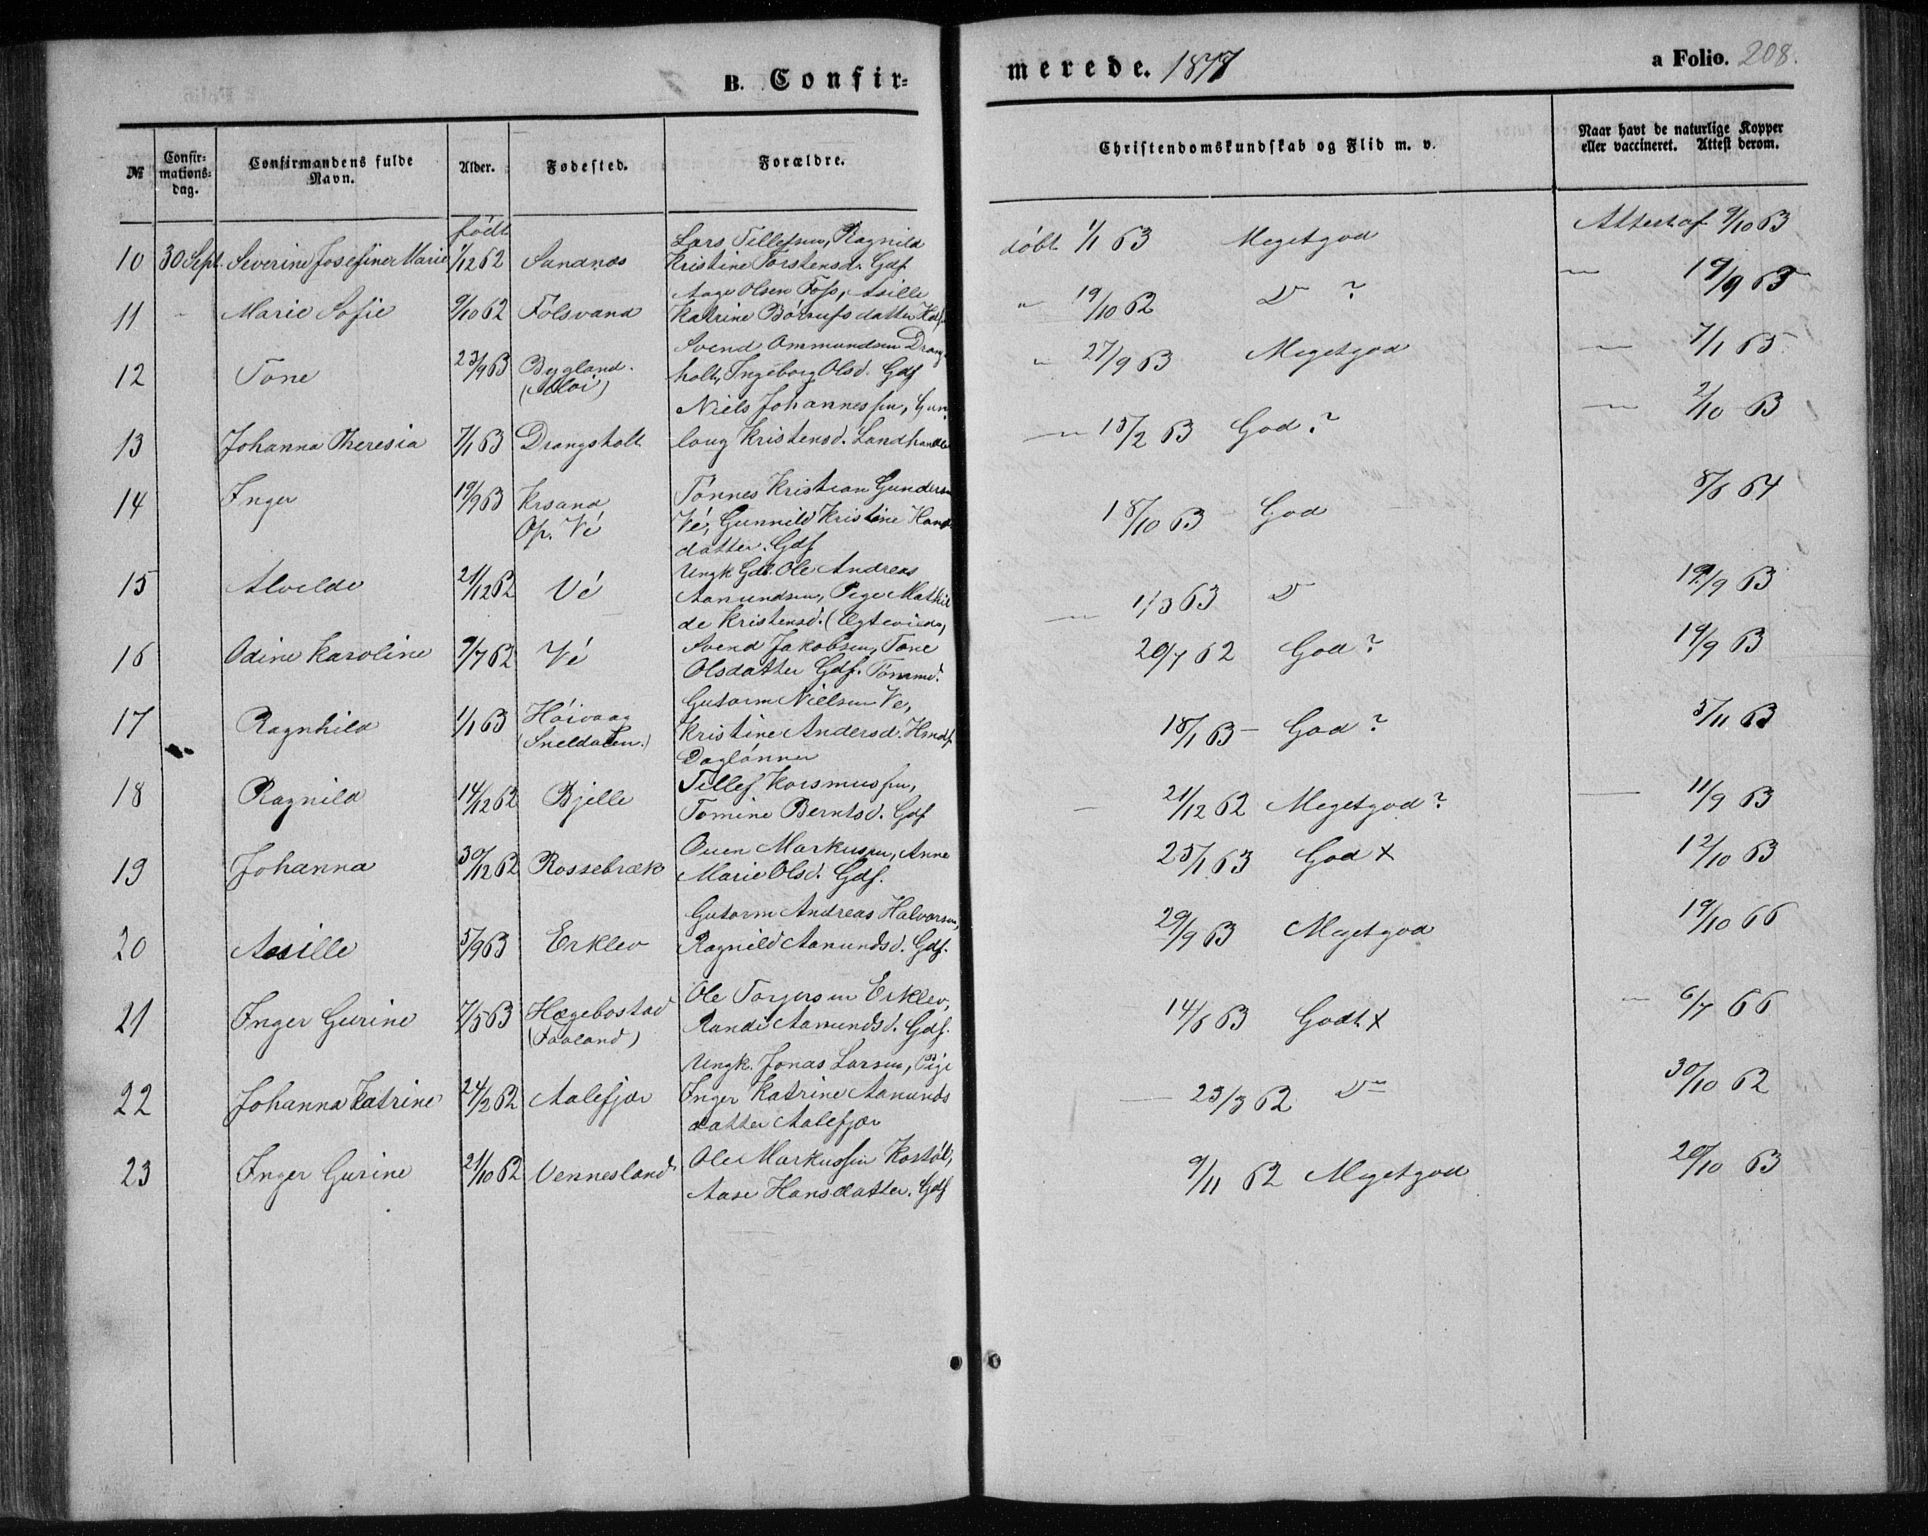 B. Confir=
merede. 1877
a Folio. 208.
№ Confir=mations=dag. Confirmandens fulde Navn. Alder. Fødested. Forældre. Christendomskundskab og Flid m. v. Naar havt de naturlige Kopper eller vaccineret. Attest derom.
født
Lars Tellefsen, Ragnild
10 30 Sept. Severine Josefine Marie 1/12 62 Sandnes Kristine Torstensd. Gdf. døbt 1/1 63 Megetgod Attest af 9/10 63
Aage Olsen Foss, Asille
11 - Marie Sofie 9/10 62 Følsvand Katrine Børrufsdatter " 19/10 62 D ? — 19/9 63
Svend Ommundsen Drang
12 Tone 23/9 63 Bygland. holt, Ingeborg Olsd. Gdf " 27/9 63 Megetgod — 7/1 65
Niels Johannessen, Gun
13 Johanna Theresia 7/1 63 Drangsholt loug Kristensd. Landhandler — 15/2 63 God ? — 2/10 63
14 Inger 19/9 63 Krsand, Tønnes Kristian Gunders 18/10 63 God 8/6 64
Op. Vé Vé, Gunnild Kristine Hans
datter. Gdf
Ungk Gdb. Ole Andreas
15 Alvilde 21/12 62 Vé Aamundsen, Pige Mathil — 1/3 63 D 19/9 63
de Kristensd. (Ugtevied,
16 Odine Karoline 9/7 62 Vé Svend Jakobsen, Tone 20/7 62 God ? 19/9 63
Olsdatter Gdf. Tømmd.
Gutorm Nielsen Ve,
17 Ragnhild 1/1 63 Høivaag Kristine Andersd. Hmdf. 18/1 63 - God ? 5/11 63
(Sneldalen.) Daglønner
18 Ragnild 14/12 62 Bjelle Tellef Korsmussen, - 21/12 62 Megetgod ? — 11/9 63
Tomine Berntsd. Gdf
Ouen Markussen, Anne
19 Johanna 30/12 62 Rossebræk Marie Olsd. Gdf. 25/1 63 God x 12/10 63
Gutorm Andreas Halvorsen,
20 Assille 5/9 63 Erklev Ragnild Aamundsd. Gdf. 29/9 63 Megetgod 19/10 66
Ole Torjersen Erklev,
21 Inger Gurine 7/5 63 Hægebostad Rande Aamundsd. Gdf. 14/6 63 Godt x — 6/7 66
(Faaland)
Ungk. Jonas Larsen, Pige
22 Johanna Katrine 24/2 62 Aalefjær Inger Katrine Aamunds — 23/3 62 D 30/10 62
datter Aalefjær
23 Inger Gurine 21/10 62 Vennesland Ole Markussen Kostøl, 9/11 62 Megetgod 20/10 63
Aase Hansdatter. Gdf